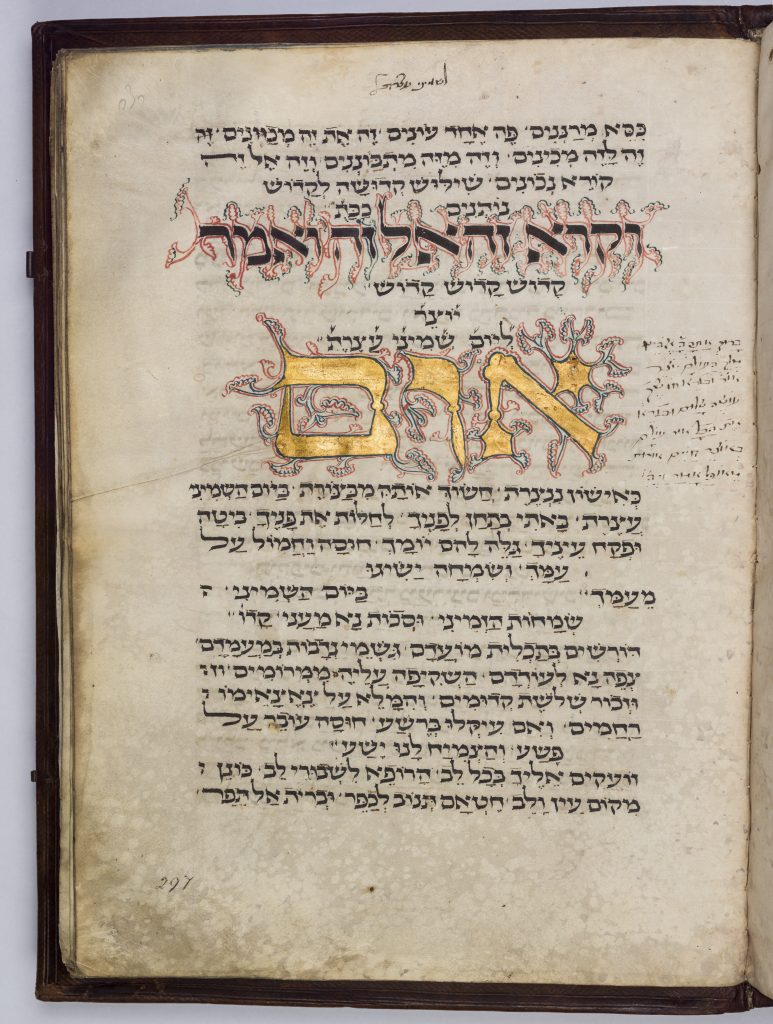 לשמיני עצרת
כִּסֵּא מְרַנְּנִים׳ פֶּה אֶחָד עוֹנִים׳ זֶה אֶת זֶה מְכַוְּונִים׳ זֶה
לָזֶה מְכִינִים׳ וְזֶה מִזֶּה מִתְבּוֹנְנִים וְזֶה אֶל זֶה
קוֹרֵא נְכוֹנִים׳ שִׁילּוּשׁ קְדוּשָּׁה לַקָּדוֹשׁ
נוֹתְנִים׳ כַּכָּת׳
וקרא זה אל זה ואמר
קָדוֹשׁ קָדוֹשׁ קָדוֹשׁ׳
יוֹצֵר
לְיוֹם שְׁמִינִי עֲצֶרֶת
אום
כְּאִישׁוֹן נִנְצֶרֶת׳ חֲשׂוֹךְ אוֹתָהּ מִבַּצּוֹרֶת׳ בַּיּוֹם הַשְּׁמִינִי
עֲצֶרֶת׳ בָּאתִי בְתַחַן לְפָנֶיךָ׳ לְחַלּוֹת אֶת פָּנֶיךָ׳ בִּיטָה
וּפְקַח עֵינֶיךָ׳ גַּלֵּה לָהֶם יוֹמָךְ׳ חוּסָה וַחֲמוֹל עַל
עַמָּךְ׳ וְשִׂמְחָה יַשִּׂיגוּ
מֵעַמָּךְ׳ בַּיּוֹם הַשְּׁמִינִי׳
שְׂמָחוֹת הַזְמִינִי׳ וְסֻכּוֹת נָא מַעֲנִי׳ קָדוֹ׳
דּוֹרְשִׁים בְּתַכְלִית מוֹעֲדָם׳ גִּשְׁמֵי נְדָבוֹת בְּמַעֲמָדָם׳
צְפֵה נָא לְעוֹדְדָם׳ הַשְׁקִיפָה עָלֶיהָ מִמְּרוֹמִים׳
וּזְכוֹר שְׁלֹשֶׁת קְדוּמִים׳
רַחֲמִים׳ וְאִם עִיקְּלוּ בְּרֶשַׁע׳ חוּסָה עוֹבֵר עַל
פֶּשַׁע׳ וְהַצְמִיחַ לָנוּ יֶשַׁע׳
זוֹעֲקִים אֵלֶיךָ בְּכָל לֵב׳ הָרוֹפֵא לִשְׁבוּרֵי לֵב׳ כּוֹנֵן
מְקוֹם עַיִן וָלֵב׳ חֶטְאָם תְּנוֹב לְכַפֵּר׳ וּבְרִית אַל תָּפֵר׳
297